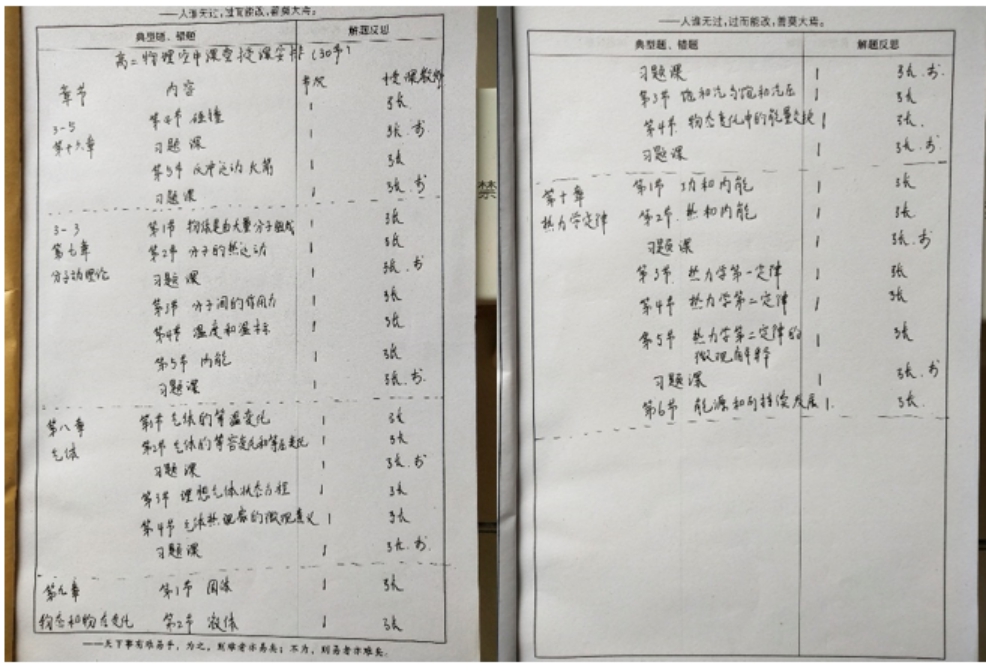 ——人谁无过，过而能改，善莫大焉。
典型题、错题 解题反思
高二物理空中课堂授课安排（30节）
章节 内容 节次 授课教师
3-5 第4节 碰撞 1 张
第十六章 习题课 1 张.书
第5节 反冲运动 火箭 1 张
习题课 1 张.书
3-3 第1节 物体是由大量分子组成 1 张
第七章 第2节 分子的热运动 1 张
分子动理论 习题课 1 张.书
第3节 分子间的作用力 1 张
第4节 温度和温标 1 张
第5节 内能 1 张
习题课 1 张.书
第八章 第1节 气体的等温变化 1 张
气体 第2节 气体的等容变化和等压变化 1 张
习题课 1 张.书
第3节 理想气体状态方程 1 张
第4节 气体热现象的微观意义 1 张
习题课 1 张.书
第九章 第1节 固体 1 张
物态和物态变化 第2节 液体 1 张
——天下事有难易乎，为之，则难者亦易矣；不为，则易者亦难矣。
——人谁无过，过而能改，善莫大焉。
典型题、错题 解题反思
习题课 1 张.书
第3节 饱和汽与饱和汽压 1 张
第4节 物态变化中的能量交换 1 张.
习题课 1 张.书
第十章 第1节 功和内能 1 张
热力学定律 第2节. 热和内能 1 张
习题课 1 张.书
第3节. 热力学第一定律 1 张
第4节 热力学第二定律 1 张
第5节 热力学第二定律的 1 张
微观解释
习题课 1 张.书
第6节 能源和可持续发展 1. 张.
禁